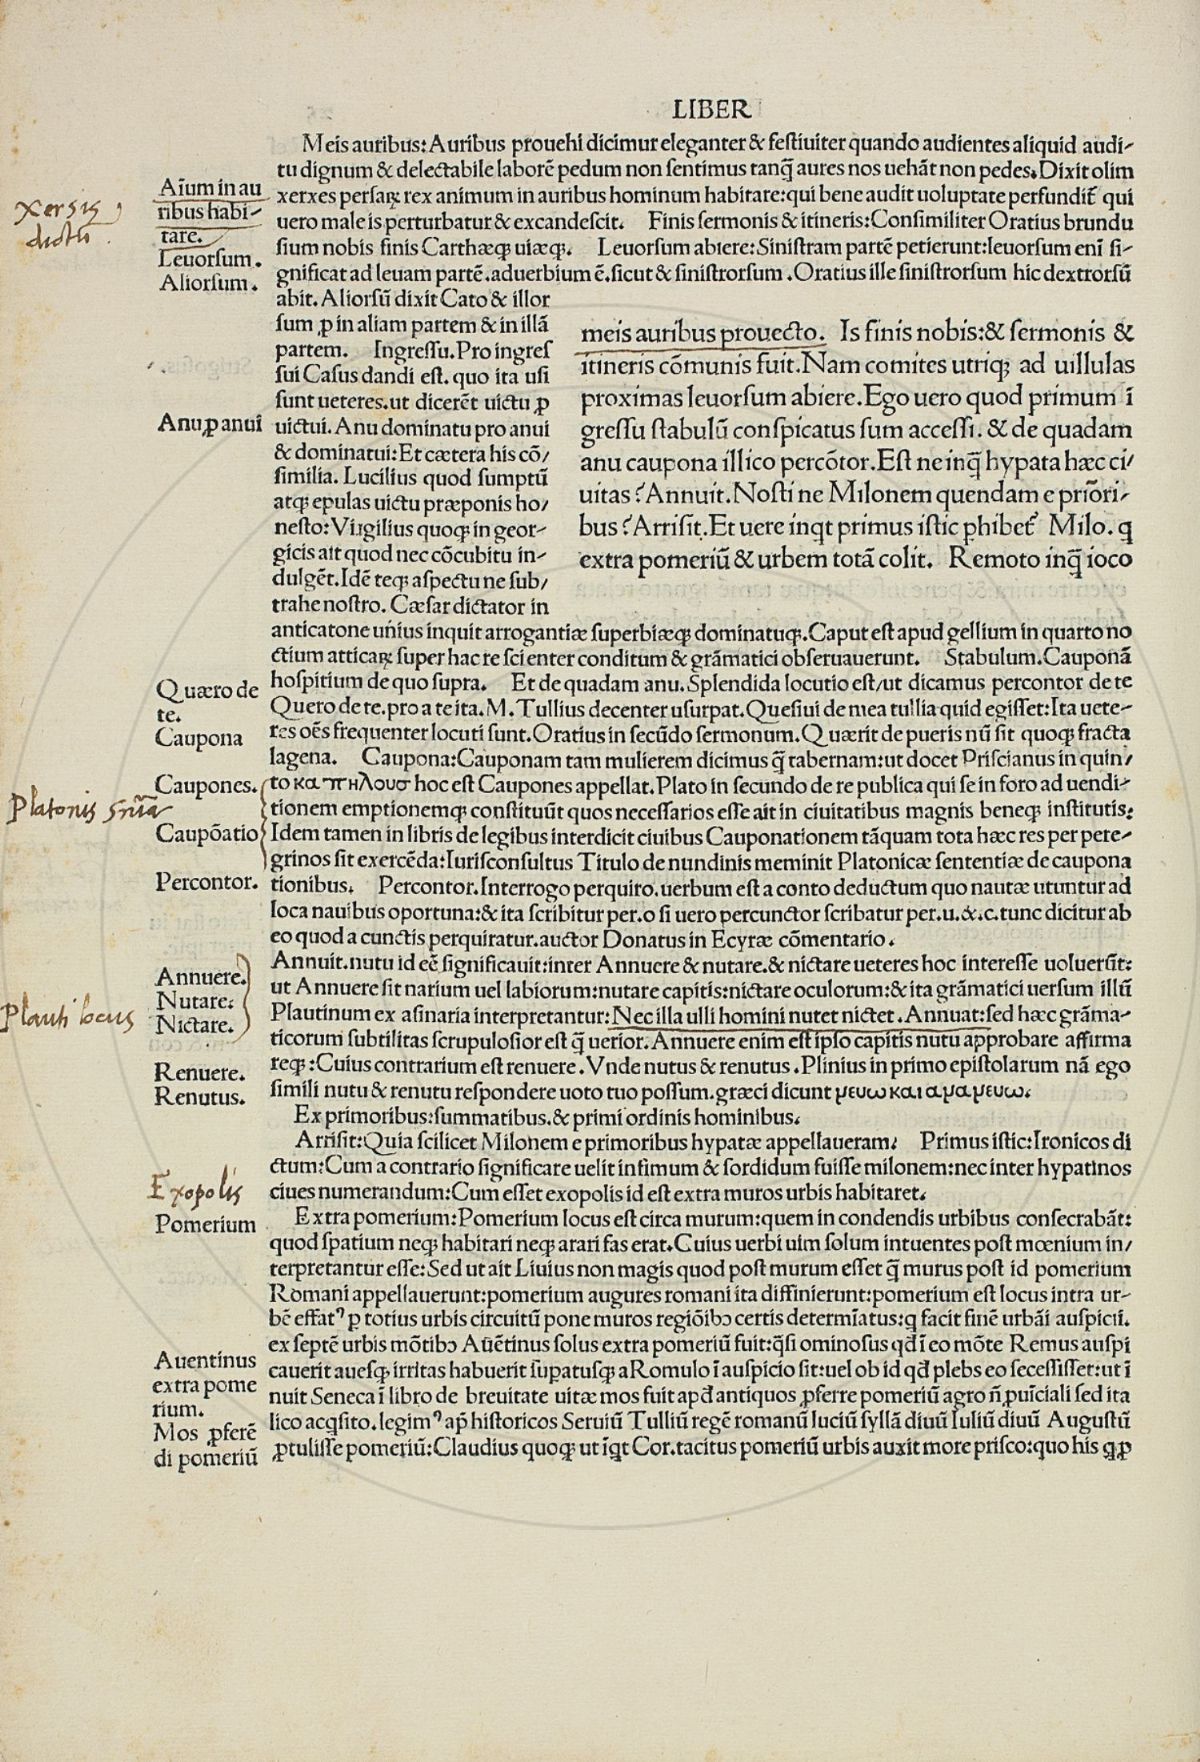 LIBER
Meis auribus: Auribus prouehi dicimur eleganter & festiuiter quando audientes aliquid audi-
tu dignum & delectabile laborē pedum non sentimus tanq̄ aures nos uehāt non pedes. Dixit olim
xerxes persaꝝ rex animum in auribus hominum habitare: qui bene audit uoluptate perfundit̄ qui
uero male is perturbatur & excandescit. Finis sermonis & itineris: Consimiliter Oratius brundu
sium nobis finis Carthæqꝫ uiæqꝫ. Leuorsum abiere: Sinistram partē petierunt: leuorsum enī si-
gnificat ad leuam partē. aduerbium ē. sicut & sinistrorsum. Oratius ille sinistrorsum hic dextrorsū
abit. Aliorsū dixit Cato & illor
sum ꝓ in aliam partem & in illā
partem. Ingressu. Pro ingres
sui Casus dandi est. quo ita usi
sunt ueteres. ut dicerēt uictu ꝓ
uictui. Anu dominatu pro anui
& dominatui: Et cætera his cō/
similia. Lucilius quod sumptū
atqꝫ epulas uictu præponis ho/
nesto: Virgilius quoqꝫ in geor-
gicis ait quod nec cōcubitu in-
dulgēt. Idē teqꝫ aspectu ne sub/
trahe nostro. Cæsar dictator in
meis auribus prouecto. Is finis nobis: & sermonis &
itineris cōmunis fuit. Nam comites utriqꝫ ad uillulas
proximas leuorsum abiere. Ego uero quod primum ī
gressu stabulū conspicatus sum accessi. & de quadam
anu caupona illico percōtor. Est ne inq̄ hypata hæc ci/
uitas? Annuit. Nosti ne Milonem quendam e priōri-
bus? Arrisit. Et uere inqt primus istic ꝑhibet̄ Milo. q
extra pomeriū & urbem totā colit. Remoto inq̄ ioco
anticatone unius inquit arrogantiæ superbiæqꝫ dominatuqꝫ. Caput est apud gellium in quarto no
ctium atticaꝝ super hac re scienter conditum & grāmatici obseruauerunt. Stabulum. Cauponā
hospitium de quo supra. Et de quadam anu. Splendida locutio est/ut dicamus percontor de te
Quero de te. pro a te ita. M. Tullius decenter usurpat. Quesiui de mea tullia quid egisset: Ita uete-
res oēs frequenter locuti sunt. Oratius in secūdo sermonum. Quærit de pueris nū sit quoqꝫ fracta
lagena. Caupona: Cauponam tam mulierem dicimus q̄ tabernam: ut docet Priscianus in quin/
to καπηλουσ hoc est Caupones appellat. Plato in secundo de re publica qui se in foro ad uendi-
tionem emptionemqꝫ constituūt quos necessarios esse ait in ciuitatibus magnis beneqꝫ institutis:
Idem tamen in libris de legibus interdicit ciuibus Cauponationem tāquam tota hæc res per pere-
grinos sit exercēda: Iurisconsultus Titulo de nundinis meminit Platonicæ sententiæ de caupona
tionibus. Percontor. Interrogo perquiro. uerbum est a conto deductum quo nautæ utuntur ad
loca nauibus oportuna: & ita scribitur per. o si uero percunctor scribatur per. u. &. c. tunc dicitur ab
eo quod a cunctis perquiratur. auctor Donatus in Ecyræ cōmentario.
Annuit. nutu id eē significauit: inter Annuere & nutare. & nictare ueteres hoc interesse uoluerūt:
ut Annuere sit narium uel labiorum: nutare capitis: nictare oculorum: & ita grāmatici uersum illū
Plautinum ex asinaria interpretantur: Nec illa ulli homini nutet nictet. Annuat: sed hæc grāma-
ticorum subtilitas scrupulosior est q̄ uerior. Annuere enim est ipso capitis nutu approbare affirma
reqꝫ: Cuius contrarium est renuere. Vnde nutus & renutus. Plinius in primo epistolarum nā ego
simili nutu & renutu respondere uoto tuo possum. græci dicunt μευω και αμαμευω.
Ex primoribus: summatibus. & primi ordinis hominibus.
Arrisit: Quia scilicet Milonem e primoribus hypatæ appellaueram. Primus istic: Ironicos di
ctum: Cum a contrario significare uelit infimum & sordidum fuisse milonem: nec inter hypatinos
ciues numerandum: Cum esset exopolis id est extra muros urbis habitaret.
Extra pomerium: Pomerium locus est circa murum: quem in condendis urbibus consecrabāt:
quod spatium neqꝫ habitari neqꝫ arari fas erat. Cuius uerbi uim solum intuentes post mœnium in/
terpretantur esse: Sed ut ait Liuius non magis quod post murum esset q̄ murus post id pomerium
Romani appellauerunt: pomerium augures romani ita diffinierunt: pomerium est locus intra ur-
bē effatꝰ ꝑ totius urbis circuitū pone muros regiōibꝰ certis determīatus: q̇ facit finē urbāi auspicii.
ex septē urbis mōtibꝰ Auētinus solus extra pomeriū fuit: q̄si ominosus qd̄ ī eo mōte Remus auspi
cauerit auesqꝫ irritas habuerit supatusqꝫ a Romulo ī auspicio sit: uel ob id qd̄ plebs eo secessisset: ut ī
nuit Seneca ī libro de breuitate uitæ mos fuit apd̄ antiquos ꝓferre pomeriū agro nō ꝓuīciali sed ita
lico acq̇sito. legimꝰ ap̄ historicos Seruiū Tulliū regē romanū luciū syllā diuū Iuliū diuū Augustū
ꝓtulisse pomeriū: Claudius quoqꝫ ut īq̇t Cor. tacitus pomeriū urbis auxit more prisco: quo his q̇ ꝓ
Aīum in au
ribus habi-
tare.
Leuorsum.
Aliorsum.
Anu ꝓ anui
Quæro de
te.
Caupona
Caupones.
Caupōatio
Percontor.
Annuere.
Nutare:
Nictare.
Renuere.
Renutus.
Exopolis
Pomerium
Auentinus
extra pome
rium.
Mos ꝓferē
di pomeriū
Xersis
dictū.
Platonis snīa
Plauti locus